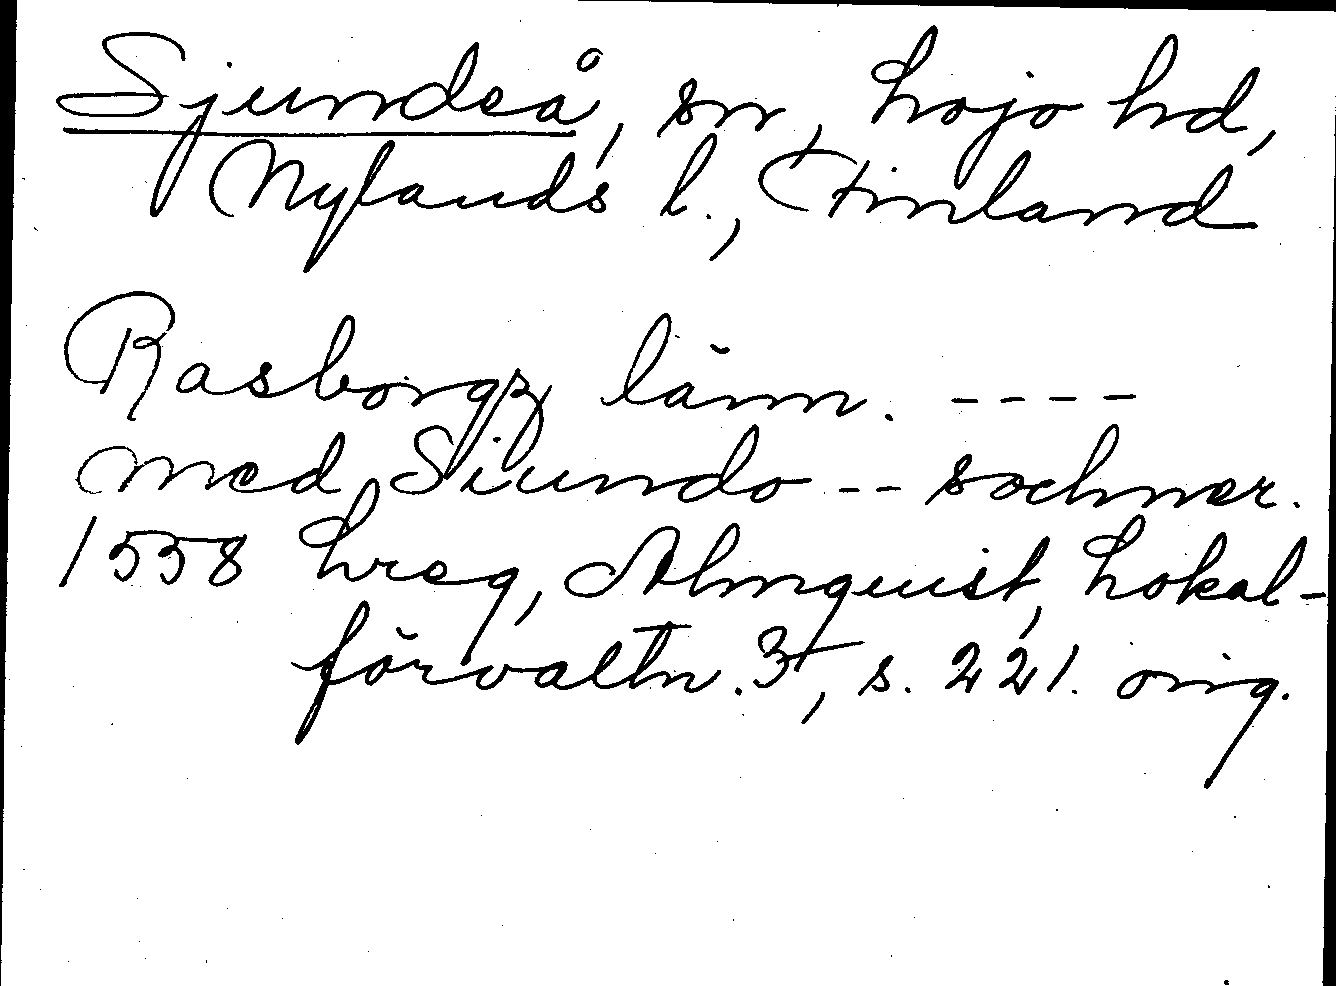 Sjundeå, sn, Lojo hd,
Nylands l., Finland
Rasborgz länn. ----
med Siundo -- sochner.
1558 Lreg, Almquist, Lokal-
förvaltn. 3, s. 221. orig.